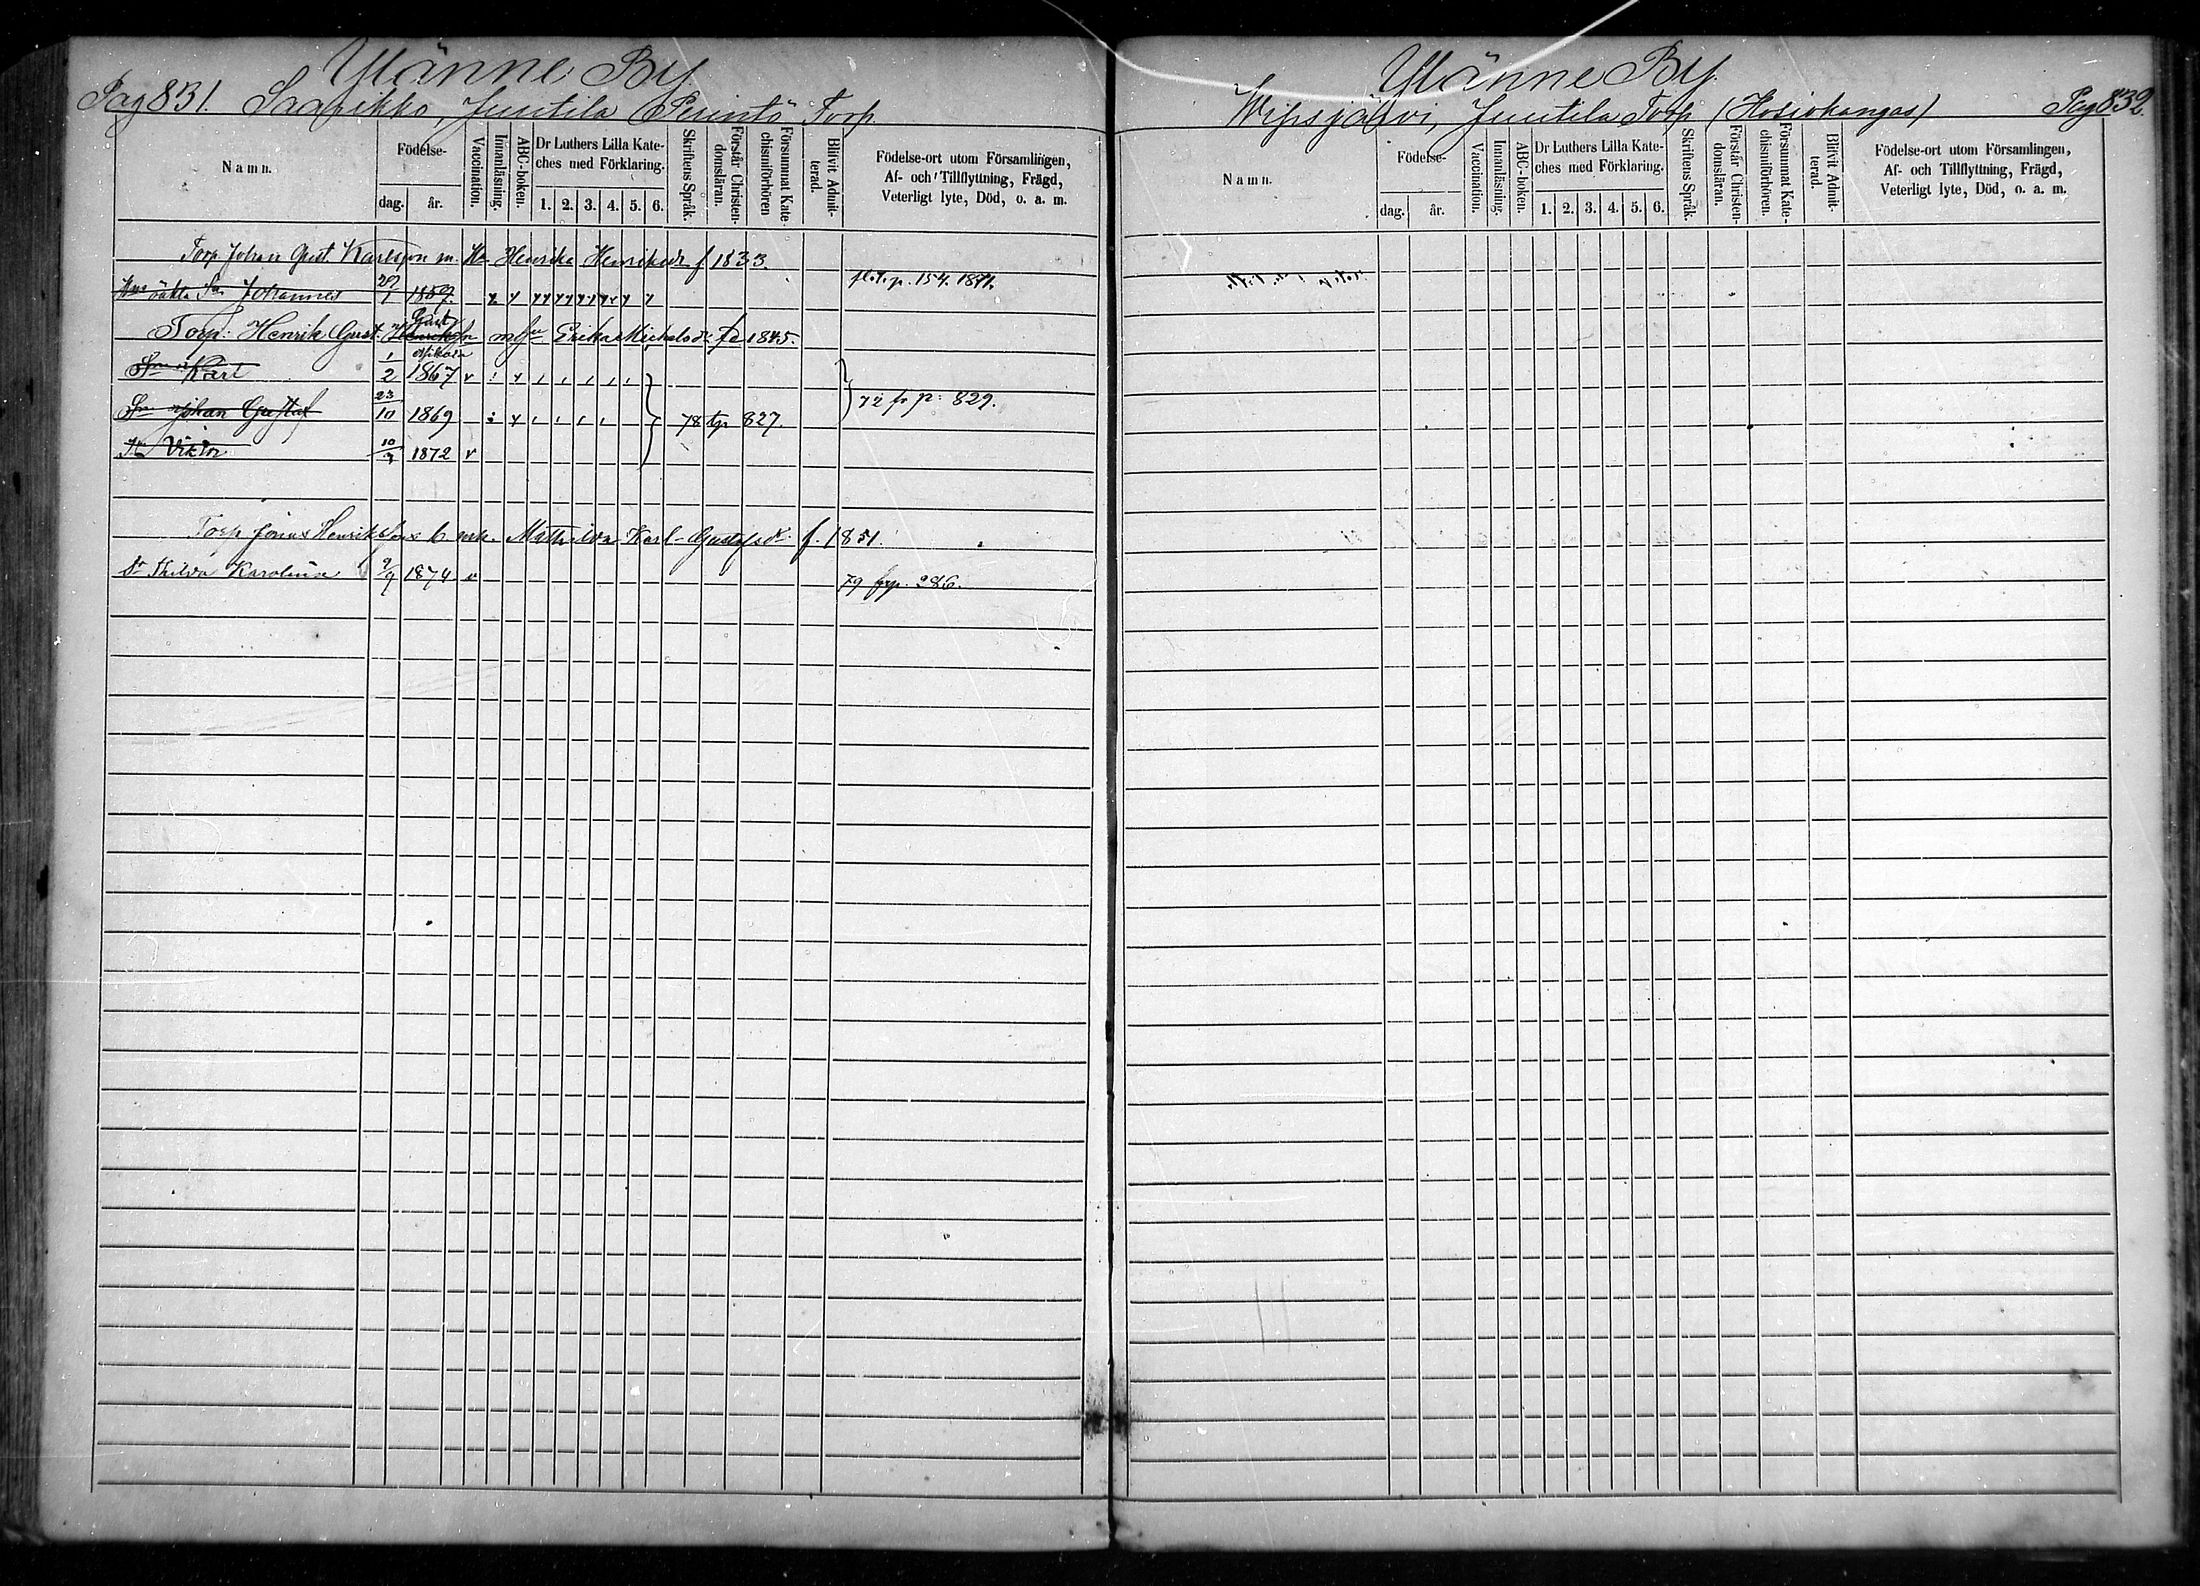 Yläinne By
Pag 831. Saarikko, Juutila Perintö Torp.
Namn.
Födelse-
dag. år.
Vaccination.
Innanläsning.
ABC-boken.
Dr Luthers Lilla Kate-
ches med Förklaring.
1. 2. 3. 4. 5. 6.
Skriftens Språk.
Förstår Christen-
domsläran.
Försummat Kate-
chismiförhören
Blifvit Admit-
terad.
Födelse-ort utom Församlingen,
Af- och Tillflyttning, Frägd,
Veterligt lyte, Död, o. a. m.
Torp Johan Gust. Karlsson m. Ha Henrika Henriksdr f 1833.
Johannes 1859. p. 154. 1871.
Torp. Henrik Gust. Erika Michelsdr fd 1845.
Karl 1/2 1867 v
Sn Johan Gustaf 23/10 1869 78 tp 827. 72 fr p: 829.
Sn Viktor 1872 v
Torp Jonas Henriksson Mathilda Karl Gustafsdr f. 1851.
Dr Thilda Karolina 1874 v 79 frp. 286.
Yläinne By.
Wipsjärvi, Juutila Torp (Hosiokangas) Pag 832.
Namn.
Födelse-
dag. år.
Vaccination.
Innanläsning.
ABC-boken.
Dr Luthers Lilla Kate-
ches med Förklaring.
1. 2. 3. 4. 5. 6.
Skriftens Språk.
Förstår Christen-
domsläran.
Försummat Kate-
chismiförhören.
Blifvit Admit-
terad.
Födelse-ort utom Församlingen,
Af- och Tillflyttning, Frägd,
Veterligt lyte, Död, o. a. m.